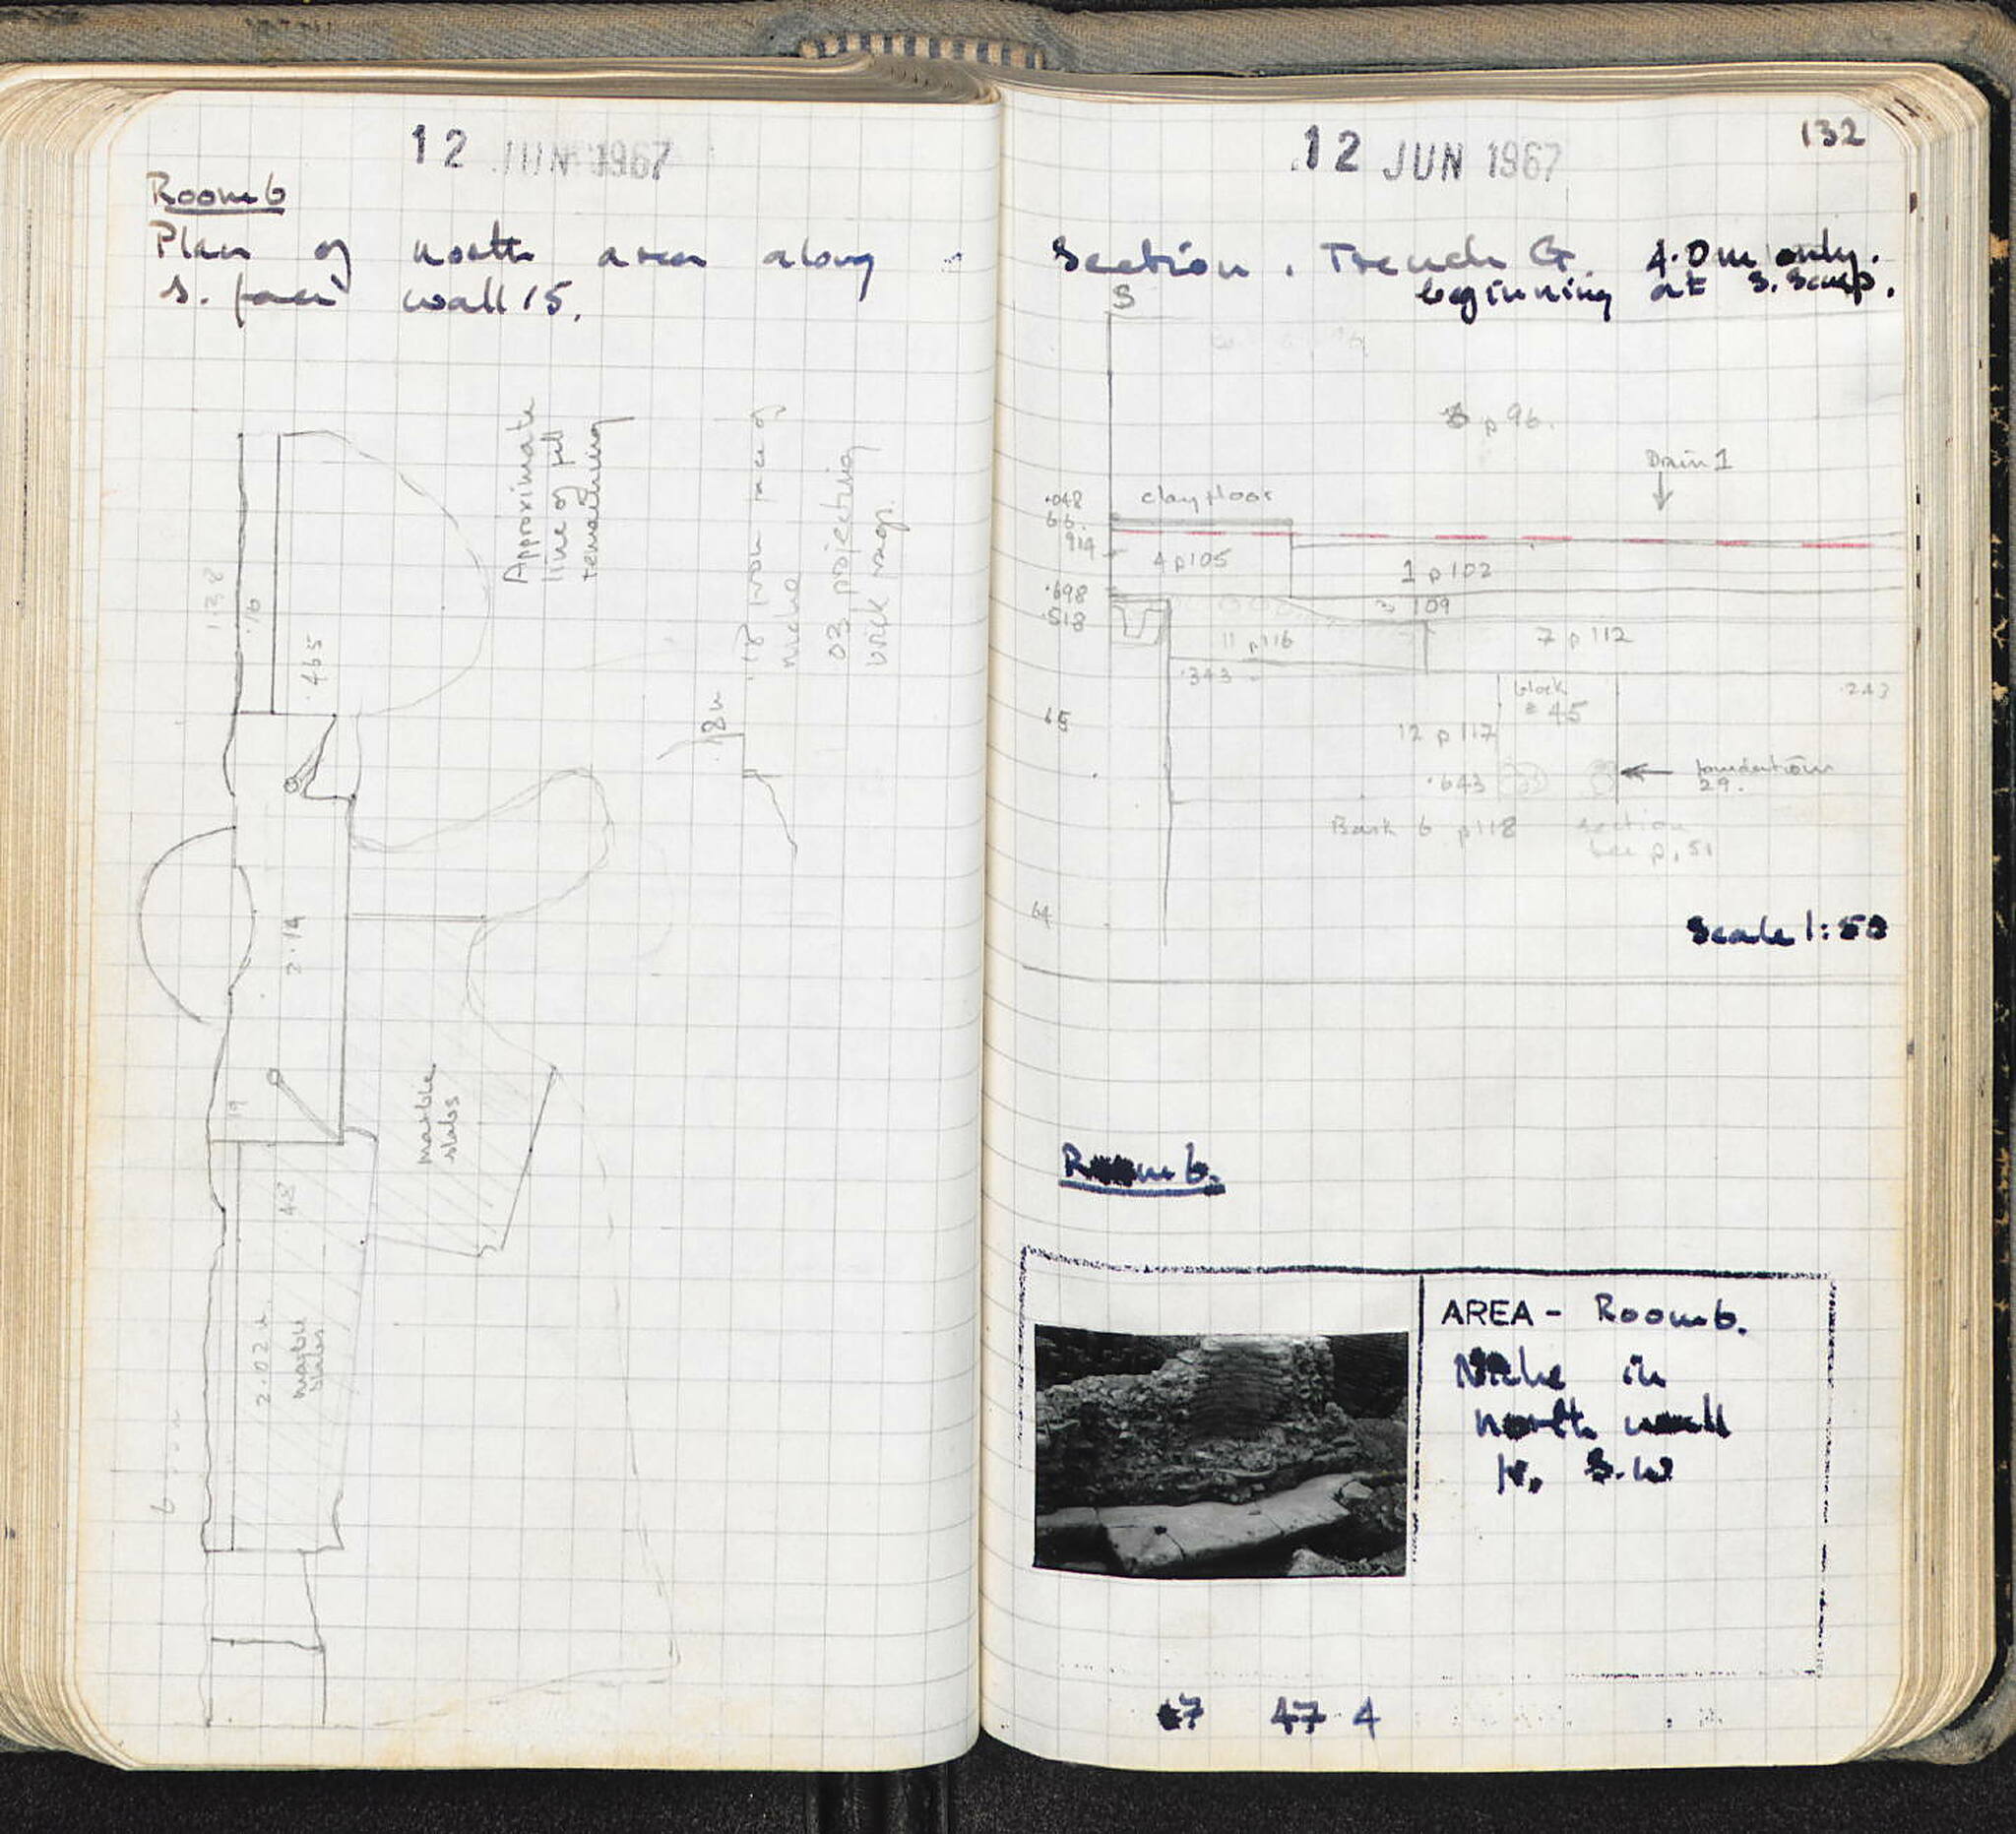 12 JUN 1967
Room 6
Plan of north area along
S. face wall 15.
Approximate
line of fill
remaining
.18 from face of
niche
03 projecting
brick
.18
1.38
.16
.465
2.14
19
marble
slabs
.48
2.02
marble
slabs
132
12 JUN 1967
Section. Trench G. 4.0m only.
beginning at S. Scarp.
S
p 96.
Drain 1
clay floor
.048
66.
.914
4 p105
1 p102
.698
3 109
.513
11 p116
7 p112
.343
block
45
.243
65
12 p117
.643
foundation
29.
Bask 6 p118
section
see p. 51
64
Scale 1:50
Room 6.
AREA - Room 6.
Niche in
north wall
fr. S.W
67 47 4